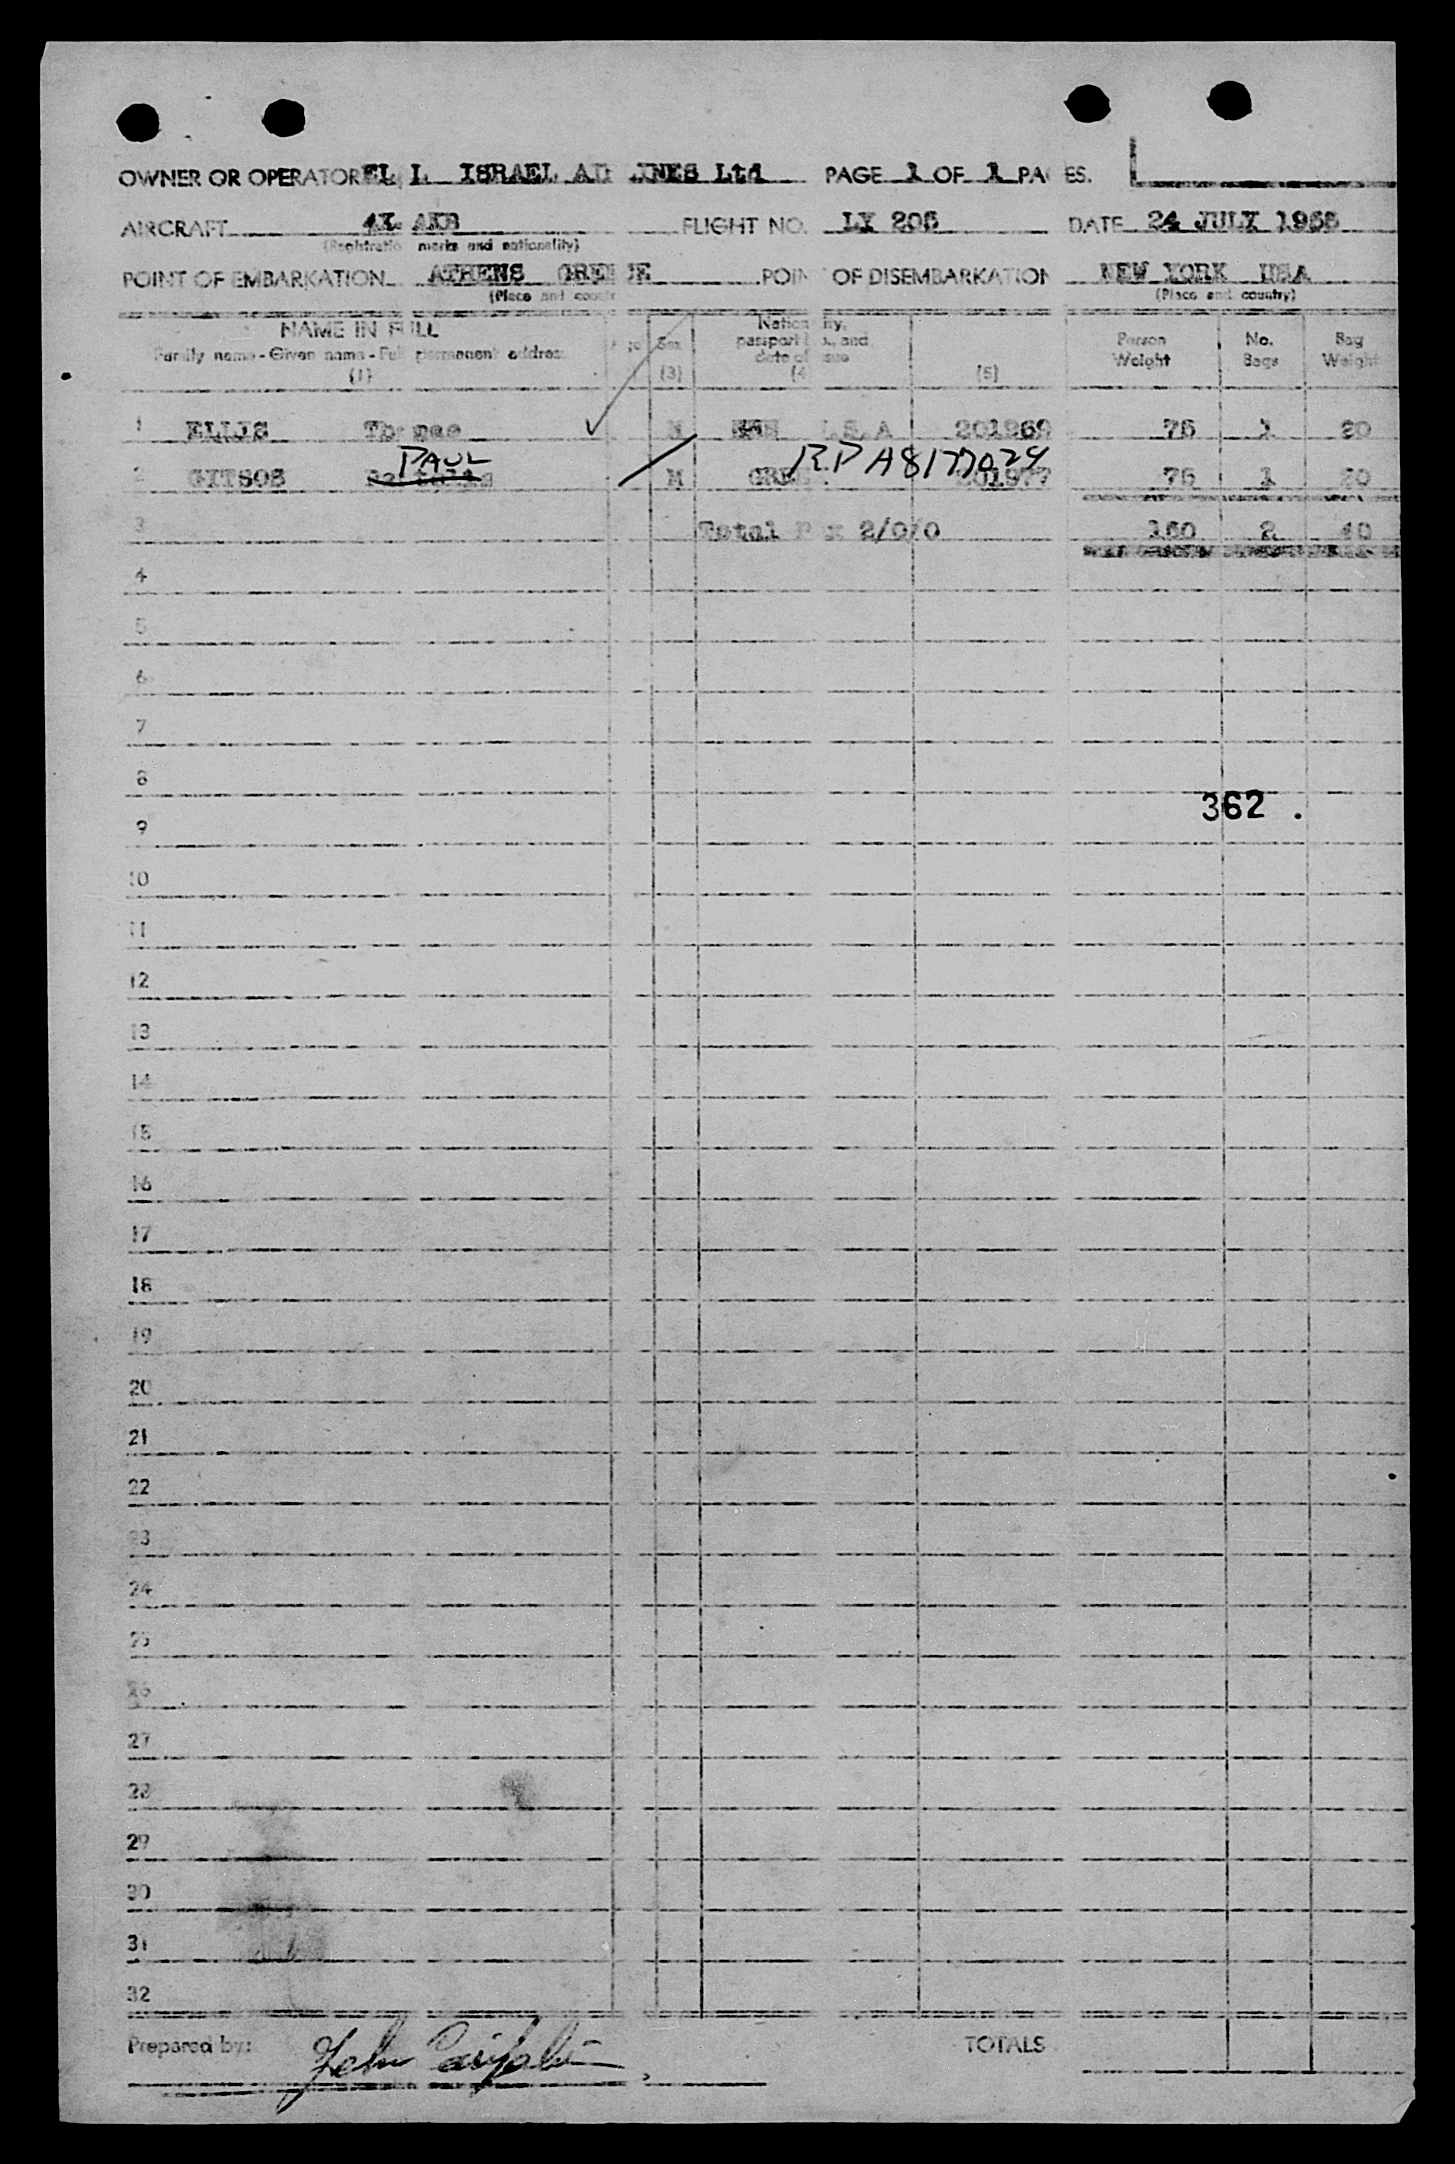 OWNER OR OPERATOR EL L ISRAEL AI INES Ltd PAGE 1 OF 1 PA ES.
AIRCRAFT 4X AXB FLIGHT NO. LY 205 DATE 24 JULY 1965
(Registratio marks and nationality)
POINT OF EMBARKATION ATHENS GREE CE POIN OF DISEMBARKATION NEW YORK USA
(Place and count (Place and country)
NAME IN FULL
Family name - Given name - Ful permanent address
(1)
Sex
(3)
Nation ity,
passport , and
date of sue
(4
(5)
Person
Weight
No.
Bags
Bag
Weight
1 ELLIS Th mas M U.S.A 201269 75 1 20
PAUL R.P A8177024
2 GITSOS M GREE 201977 75 1 20
3 Total P x 2/0/0 150 2 40
4
5
6
7
8
362 .
9
10
11
12
13
14
15
16
17
18
19
20
21
22
23
24
25
26
27
28
29
30
31
32
Prepared by: TOTALS